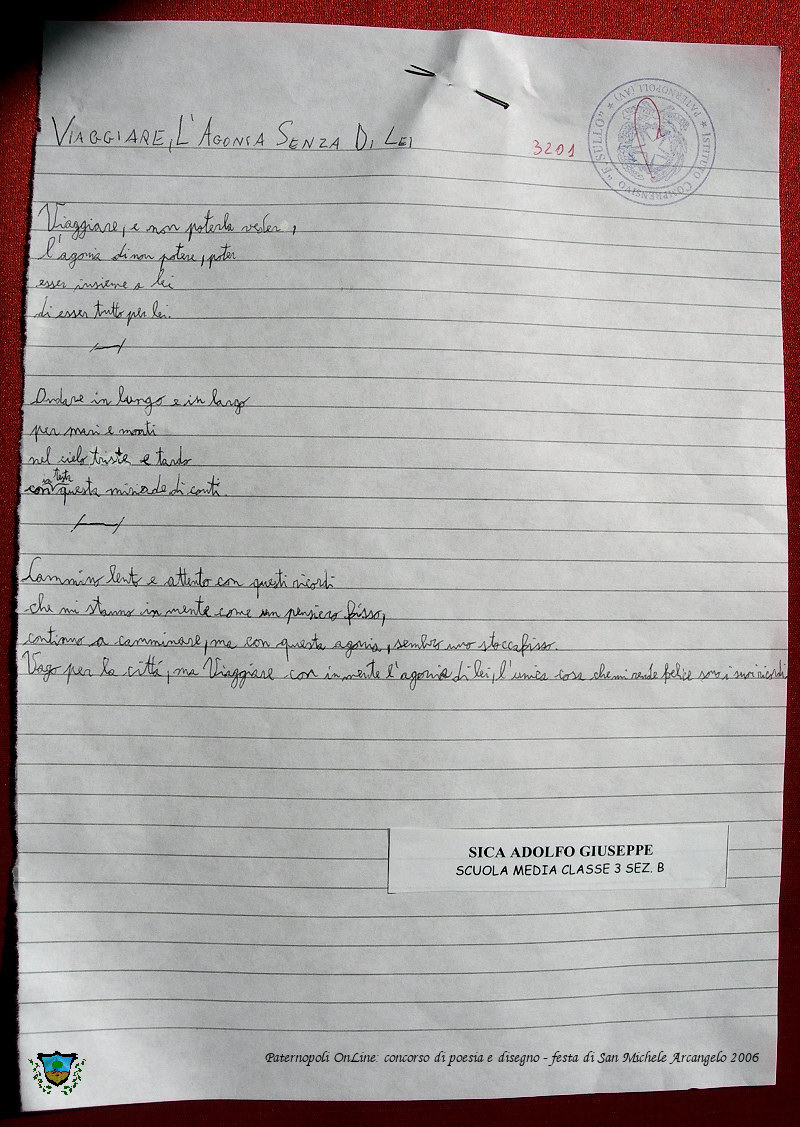 VIAGGIARE, L'AGONIA SENZA DI LEI
3201
ISTITUTO COMPRENSIVO "F. SULLO" * PATERNOPOLI (AV) *
Viaggiare, e non poterla veder,
l'agonia di non potere, poter
esser insieme a lei
di esser tutto per lei.
Andare in lungo e in largo
per mari e monti
nel cielo triste e tardo
con in testa questa miriade di conti.
Cammino lento e attento con questi ricordi
che mi stanno in mente come un pensiero fisso,
continuo a camminare, ma con questa agonia, sembro uno stoccafisso.
Vago per la città, ma Viaggiare con in mente l'agonia di lei, l'unica cosa che mi rende felice sono i suoi ricordi
SICA ADOLFO GIUSEPPE
SCUOLA MEDIA CLASSE 3 SEZ. B
Paternopoli OnLine: concorso di poesia e disegno - festa di San Michele Arcangelo 2006